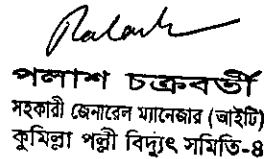 Palash
পলাশ চক্রবর্তী
সহকারী জেনারেল ম্যানেজার (আইটি)
কুমিল্লা পল্লী বিদ্যুৎ সমিতি-৪